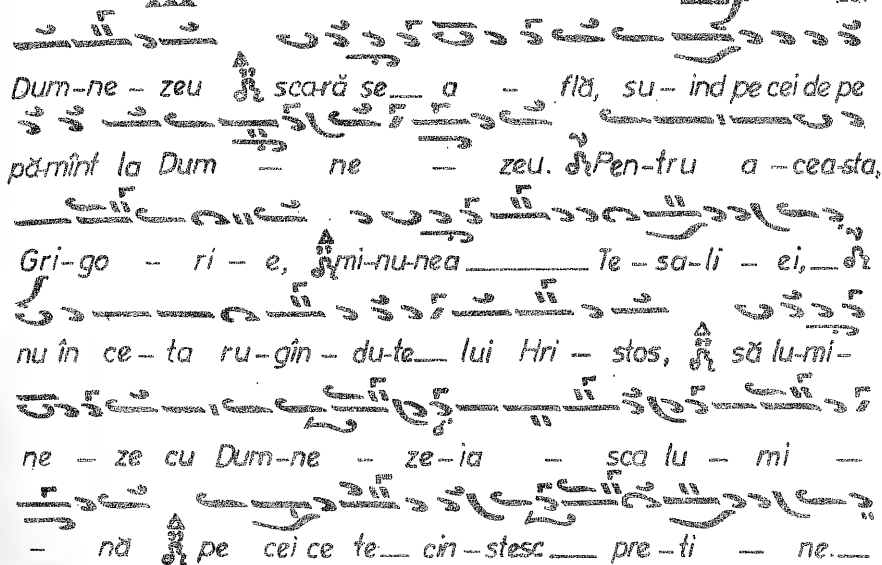 Dum-ne-zeu scară se a - flă, su-ind pe cei de pe
pă-mînt la Dum - ne - zeu. Pen-tru a-cea-sta,
Gri-go - ri-e, mi-nu-nea Te-sa-li-ei,
nu în ce-ta ru-gîn-du-te lui Hri-stos, să lu-mi-
ne - ze cu Dum-ne - ze-ia - sca lu-mi -
- nă pe cei ce te cin-stesc pre-ti - ne.